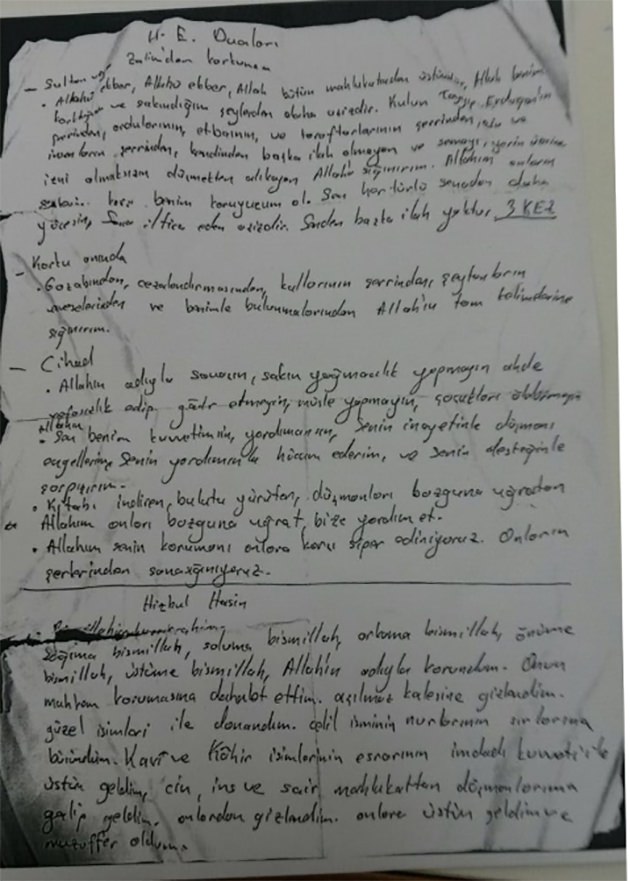 H. E. Duaları
Zalimden korkunca
- Sultan
• Allahü ekber, Allahü ekber, Allah bütün mahlukatından üstündür, Allah benim
korktuğum ve sakındığım şeylerden daha azizdir. Kulun Tayyip Erdoğan'ın
şerrinden, ordularının, etbaının, ve taraftarlarının şerrinden, ve
insanların şerrinden, kendinden başka ilah olmayan ve semayı, yerin üzerine
izni olmaksızın düşmekten alıkoyan Allaha sığınırım. Allahım onların
karşı benim koruyucum ol. Sen her türlü senadan daha
yücesin, iltica eden azizdir. Senden başka ilah yoktur. 3 KEZ
- Korku anında
• Gazabından, cezalandırmasından, kullarının şerrinden, şeytanların
vesveselerinden ve benimle bulunmalarından Allah'ın tam kelimelerine
sığınırım.
- Cihad
• Allahın adıyla savaşın, sakın yağmacılık yapmayın ahde
vefasızlık edip gadr etmeyin, müsle yapmayın, çocukları öldürmeyin
Allahım
• Sen benim kuvvetimsin, yardımcımsın, Senin inayetinle düşmanı
engellerim, Senin yardımınla hücum ederim, ve senin desteğinle
çarpışırım.
• Kitabı indiren, bulutu yürüten, düşmanları bozguna uğratan
Allahım onları bozguna uğrat, bize yardım et.
• Allahım senin korumanı onlara karşı siper ediniyoruz. Onların
şerlerinden sana sığınıyoruz.
Hizbul Hasin
Sağıma bismillah, soluma bismillah, arkama bismillah, önüme
bismillah, üstüme bismillah, Allah'ın adıyla korundum. Onun
muhkem korumasına dahalet ettim. açılmaz kalesine gizlendim.
güzel isimleri ile donandım. celil isminin nurlarının sırlarına
büründüm. Kavi ve Kâhir isimlerinin esrarının imdadı kuvveti ile
üstün geldim, cin, ins ve sair mahlukattan düşmanlarıma
galip geldim. onlardan gizlendim. onlara üstün geldim ve
muzaffer oldum.